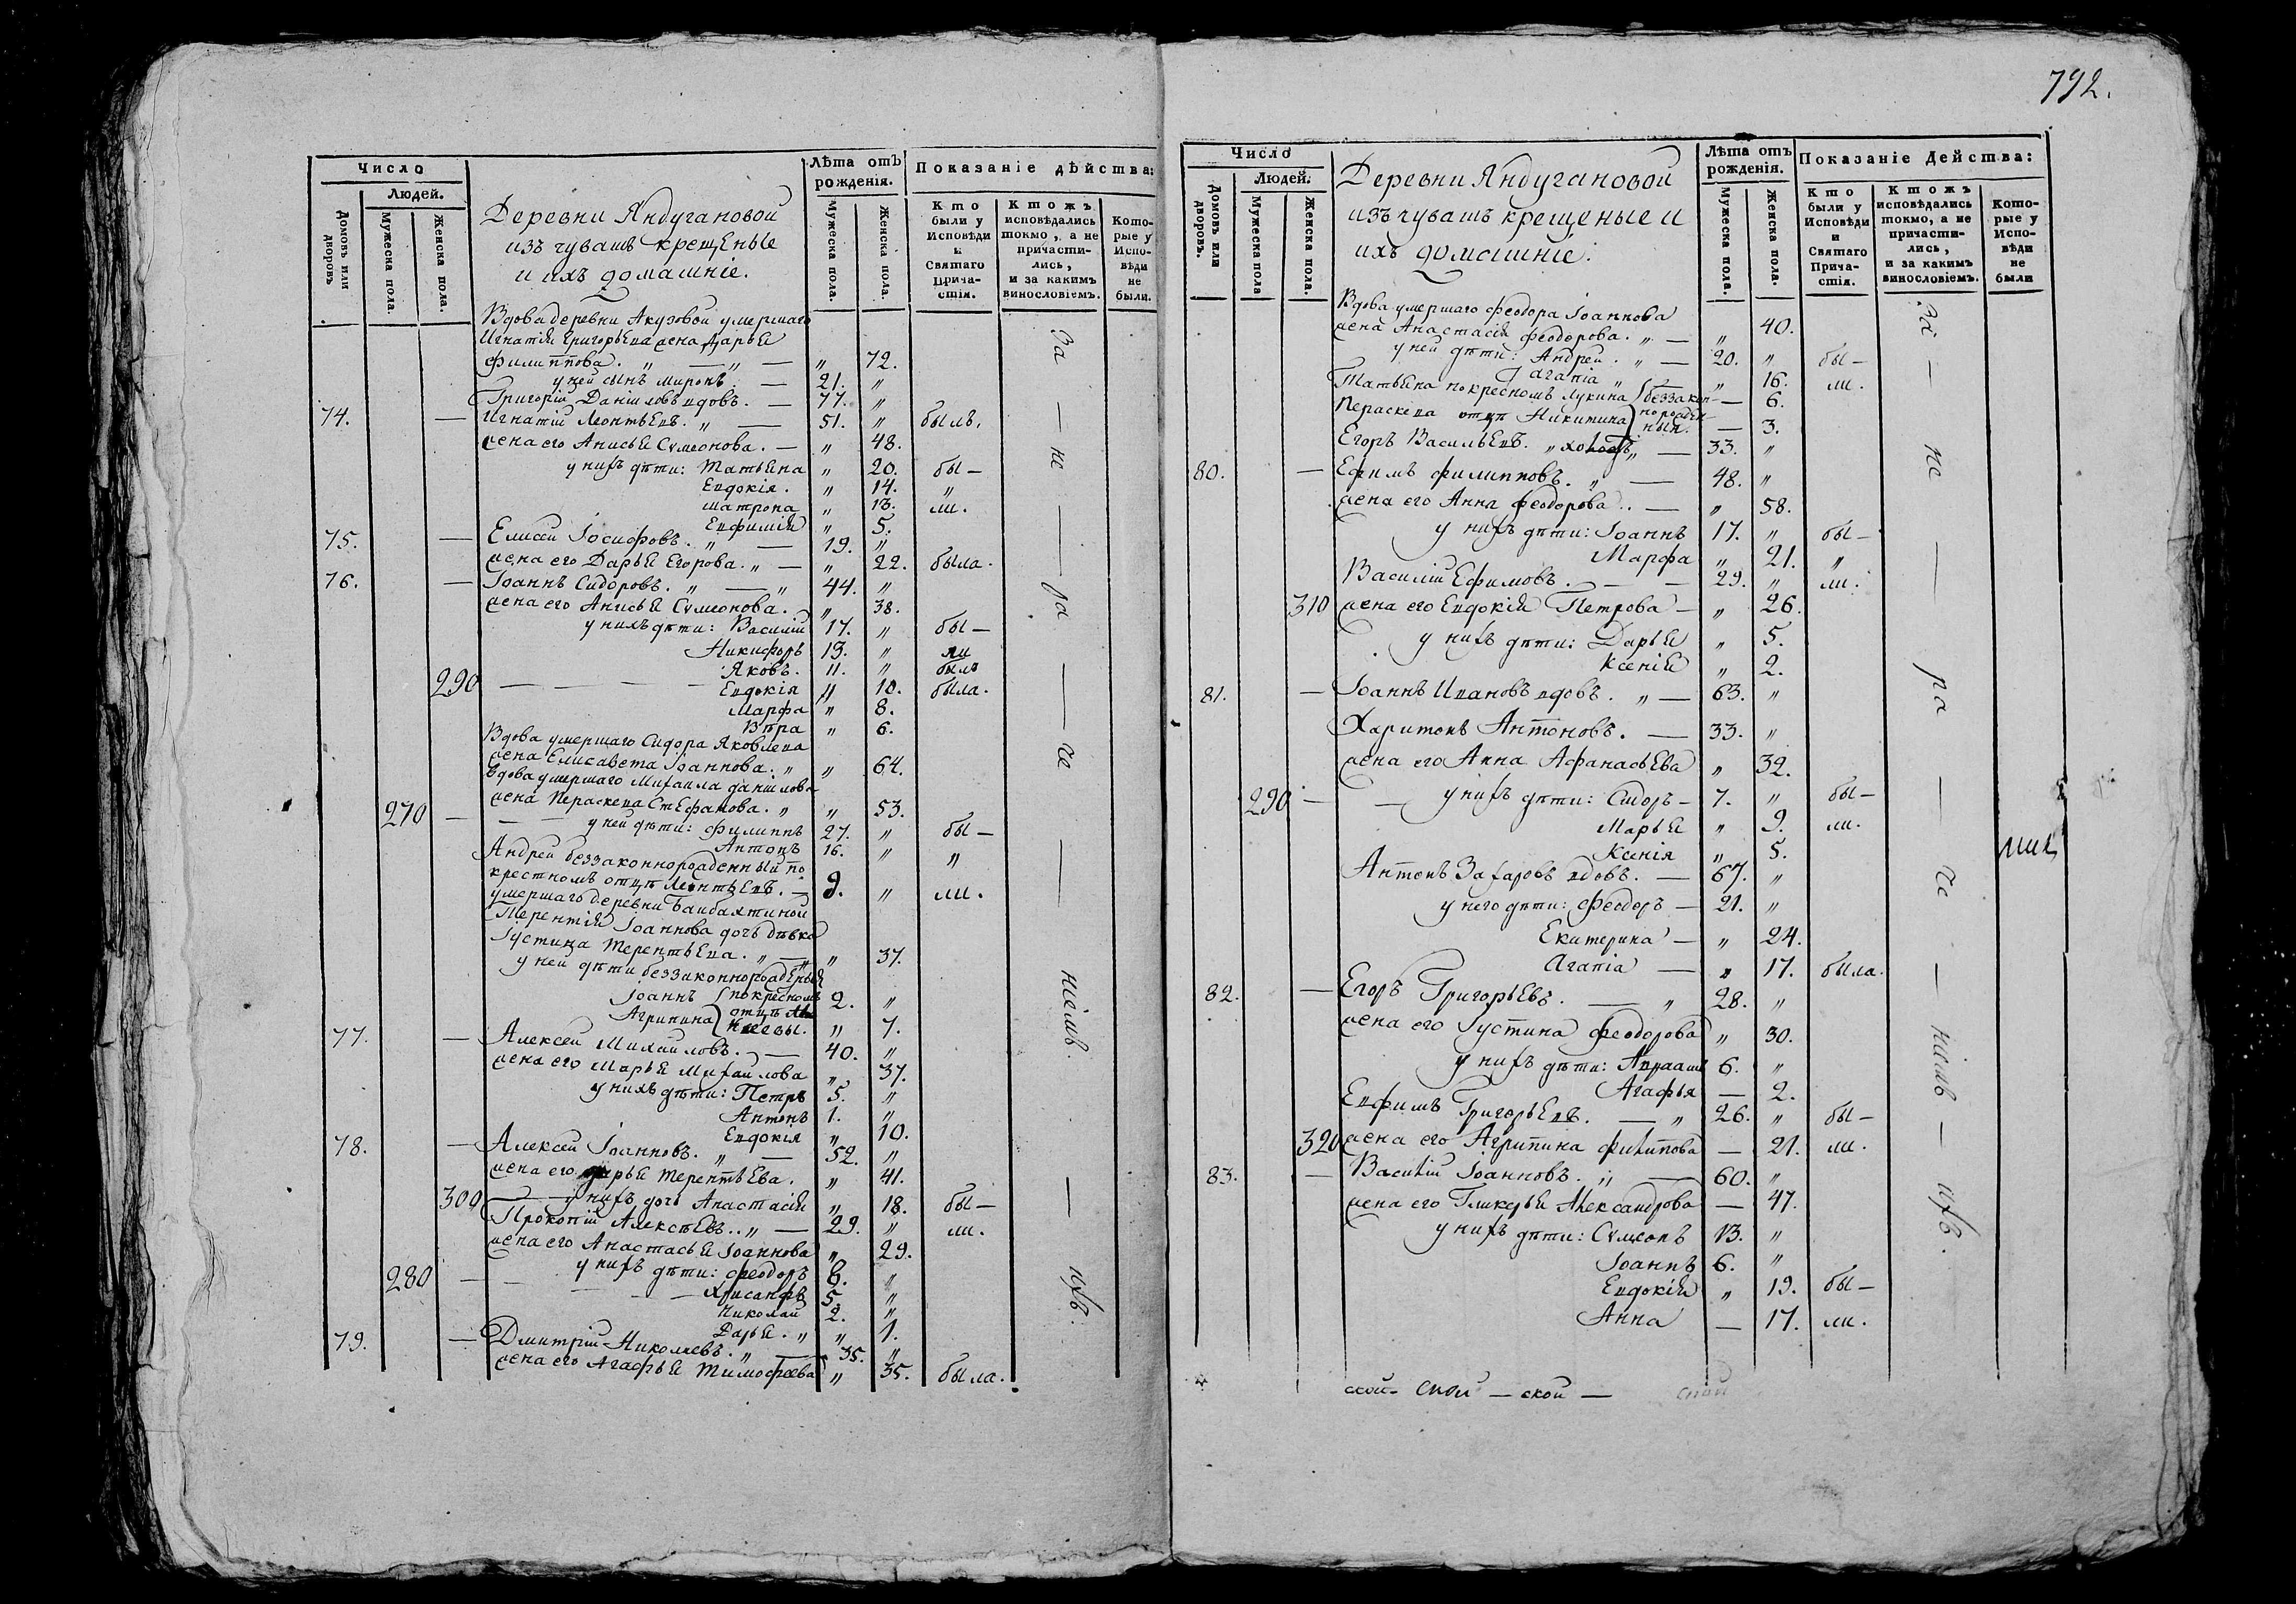 792.
Число
Людей.
Домовъ или дворовъ
Мужеска пола.
Женска пола.
Деревни Яндугановой
изъ чувашъ крещеные
и ихъ домашніе.
Лѣта отъ рожденія.
Мужеска пола.
Женска пола.
Показаніе дѣйства:
Кто были у Исповѣди и Святаго Прича-стія.
Ктожъ исповѣдались токмо, а не причасти-лись, и за какимъ винословіемъ.
Кото-рые у Испо-вѣди не были.
Вдова деревни Акузовой умершаго
Игнатія Григорьева жена Дарья
Филиппова. „ — „ — „ 72.
у ней сынъ Миронъ. — 21. „
Григорій Даниловъ вдовъ. — 77. „
74. — Игнатій Леонтьевъ. „ — 51. „ былъ.
жена его Анисья Сѵмеонова. — „ 48.
у нихъ дѣти: Татьяна „ 20. бы —
Евдокія. „ 14. „
Матрона „ 13. ли.
Евфимія „ 5.
75. — Елисей Іосифовъ. „ — 19. „
жена его Дарья Егорова. „ — „ 22. была.
76. — Іоаннъ Сидоровъ. „ — „ 44. „
жена его Анисья Сѵмеонова. „ 38.
у нихъ дѣти: Василій 17. „ бы —
Никифоръ 13. „ ли
Яковъ. 11. „ былъ
290 — — — — Евдокія „ 10. была.
Марфа „ 8.
Вѣра „ 6.
Вдова умершаго Сидора Яковлева
жена Елисавета Іоаннова. „ „ 64.
Вдова умершаго Михаила Данилова
жена Пераскева Стефанова. „ „ 53.
270 — — у ней дѣти: Филиппъ 27. „ бы —
Антонъ 16. „ „
Андрей беззаконнорожденный по
крестномъ отцѣ Леонтьевъ. — 9. „ ли.
умершаго деревни Байбахтиной
Терентія Іоаннова дочь дѣвка
Іустина Терентьева. „ — „ „ 37.
у ней дѣти беззаконнорожденныя
Іоаннъ { по кресномъ 2. „
Агрипина { отцѣ „ 7.
77. — Алексей Михайловъ. — 40. „
жена его Марья Михайлова „ 37.
у нихъ дѣти: Петръ 5. „
Антонъ 1. „
Евдокія „ 10.
78. — Алексей Іоанновъ. „ — 52. „
жена его Дарья Терентьева. „ 41.
300 — у нихъ дочь Анастасія „ 18. бы —
Прокопій Алексѣевъ.. „ — 29. „ ли.
жена его Анастасья Іоаннова „ 29.
280 — — у нихъ дѣти: Феодоръ 8. „
— — — Хрисанфъ 5. „
Николай 2. „
Дарья. „ „ 1.
79. — Дмитрій Николаевъ. „ — 35. „
жена его Агафья Тимофеева „ 35. была.
За — не — — ра — че — ніемъ. — ихъ.
Число
Людей.
Домовъ или дворовъ.
Мужеска пола
Женска пола.
Деревни Яндугановой
изъ чувашъ крещеные и
ихъ домашніе:
Лѣта отъ рожденія.
Мужеска пола.
Женска пола.
Показаніе Действа:
Кто были у Исповѣди и Святаго Прича-стія.
Ктожъ исповѣдались токмо, а не причасти-лись, и за какимъ винословіемъ.
Кото-рые у Испо-вѣди не были
Вдова умершаго Феодора Іоаннова
жена Анастасія Феодорова. „ — „ 40.
у ней дѣти: Андрей. „ — 20. „ бы —
Агапіа „ — „ 16. ли.
Татьяна по кресномъ Лукина { беззакон- — 6.
Пераскева отцѣ Никитина } норожден-ныя. — 3.
Егоръ Васильевъ. „ холостъ „ — 33. „
80. — Ефимъ Филипповъ. „ — 48. „
жена его Анна Феодорова.. — „ 58.
у нихъ дѣти: Іоаннъ 17. „ бы —
Марфа „ 21. „
Василій Ефимовъ. — — 29. „ ли.
310 жена его Евдокія Петрова — „ 26.
у нихъ дѣти: Дарья „ 5.
Ксенія „ 2.
81. — Іоаннъ Ивановъ вдовъ. „ — 63. „
Харитонъ Антоновъ. — 33. „
жена его Анна Афанасьева „ 32.
290 — — у нихъ дѣти: Сидоръ — 7. „ бы —
Марья „ 9. ли.
Ксенія „ 5.
Антонъ Захаровъ вдовъ. — 67. „
у него дѣти: Феодоръ — 21. „
Екатерина — „ 24.
Агапіа — „ 17. была.
82. — Егоръ Григорьевъ. — „ 28. „
жена его Іустина Феодорова „ 30.
у нихъ дѣти: Авраамъ 6. „
Агафья — 2.
Евфимъ Григорьевъ. — „ 26. „ бы —
320 жена его Агрипина Филипова — 21. ли.
83. — Василій Іоанновъ. „ — 60. „
жена его Гликерья Александрова — 47.
у нихъ дѣти: Сѵмеонъ 13. „
Іоаннъ 6. „
Евдокія „ 19. бы —
Анна — 17. ли.
За — не — ра — че — ніемъ — ихъ.
ской — ской — ской — ской